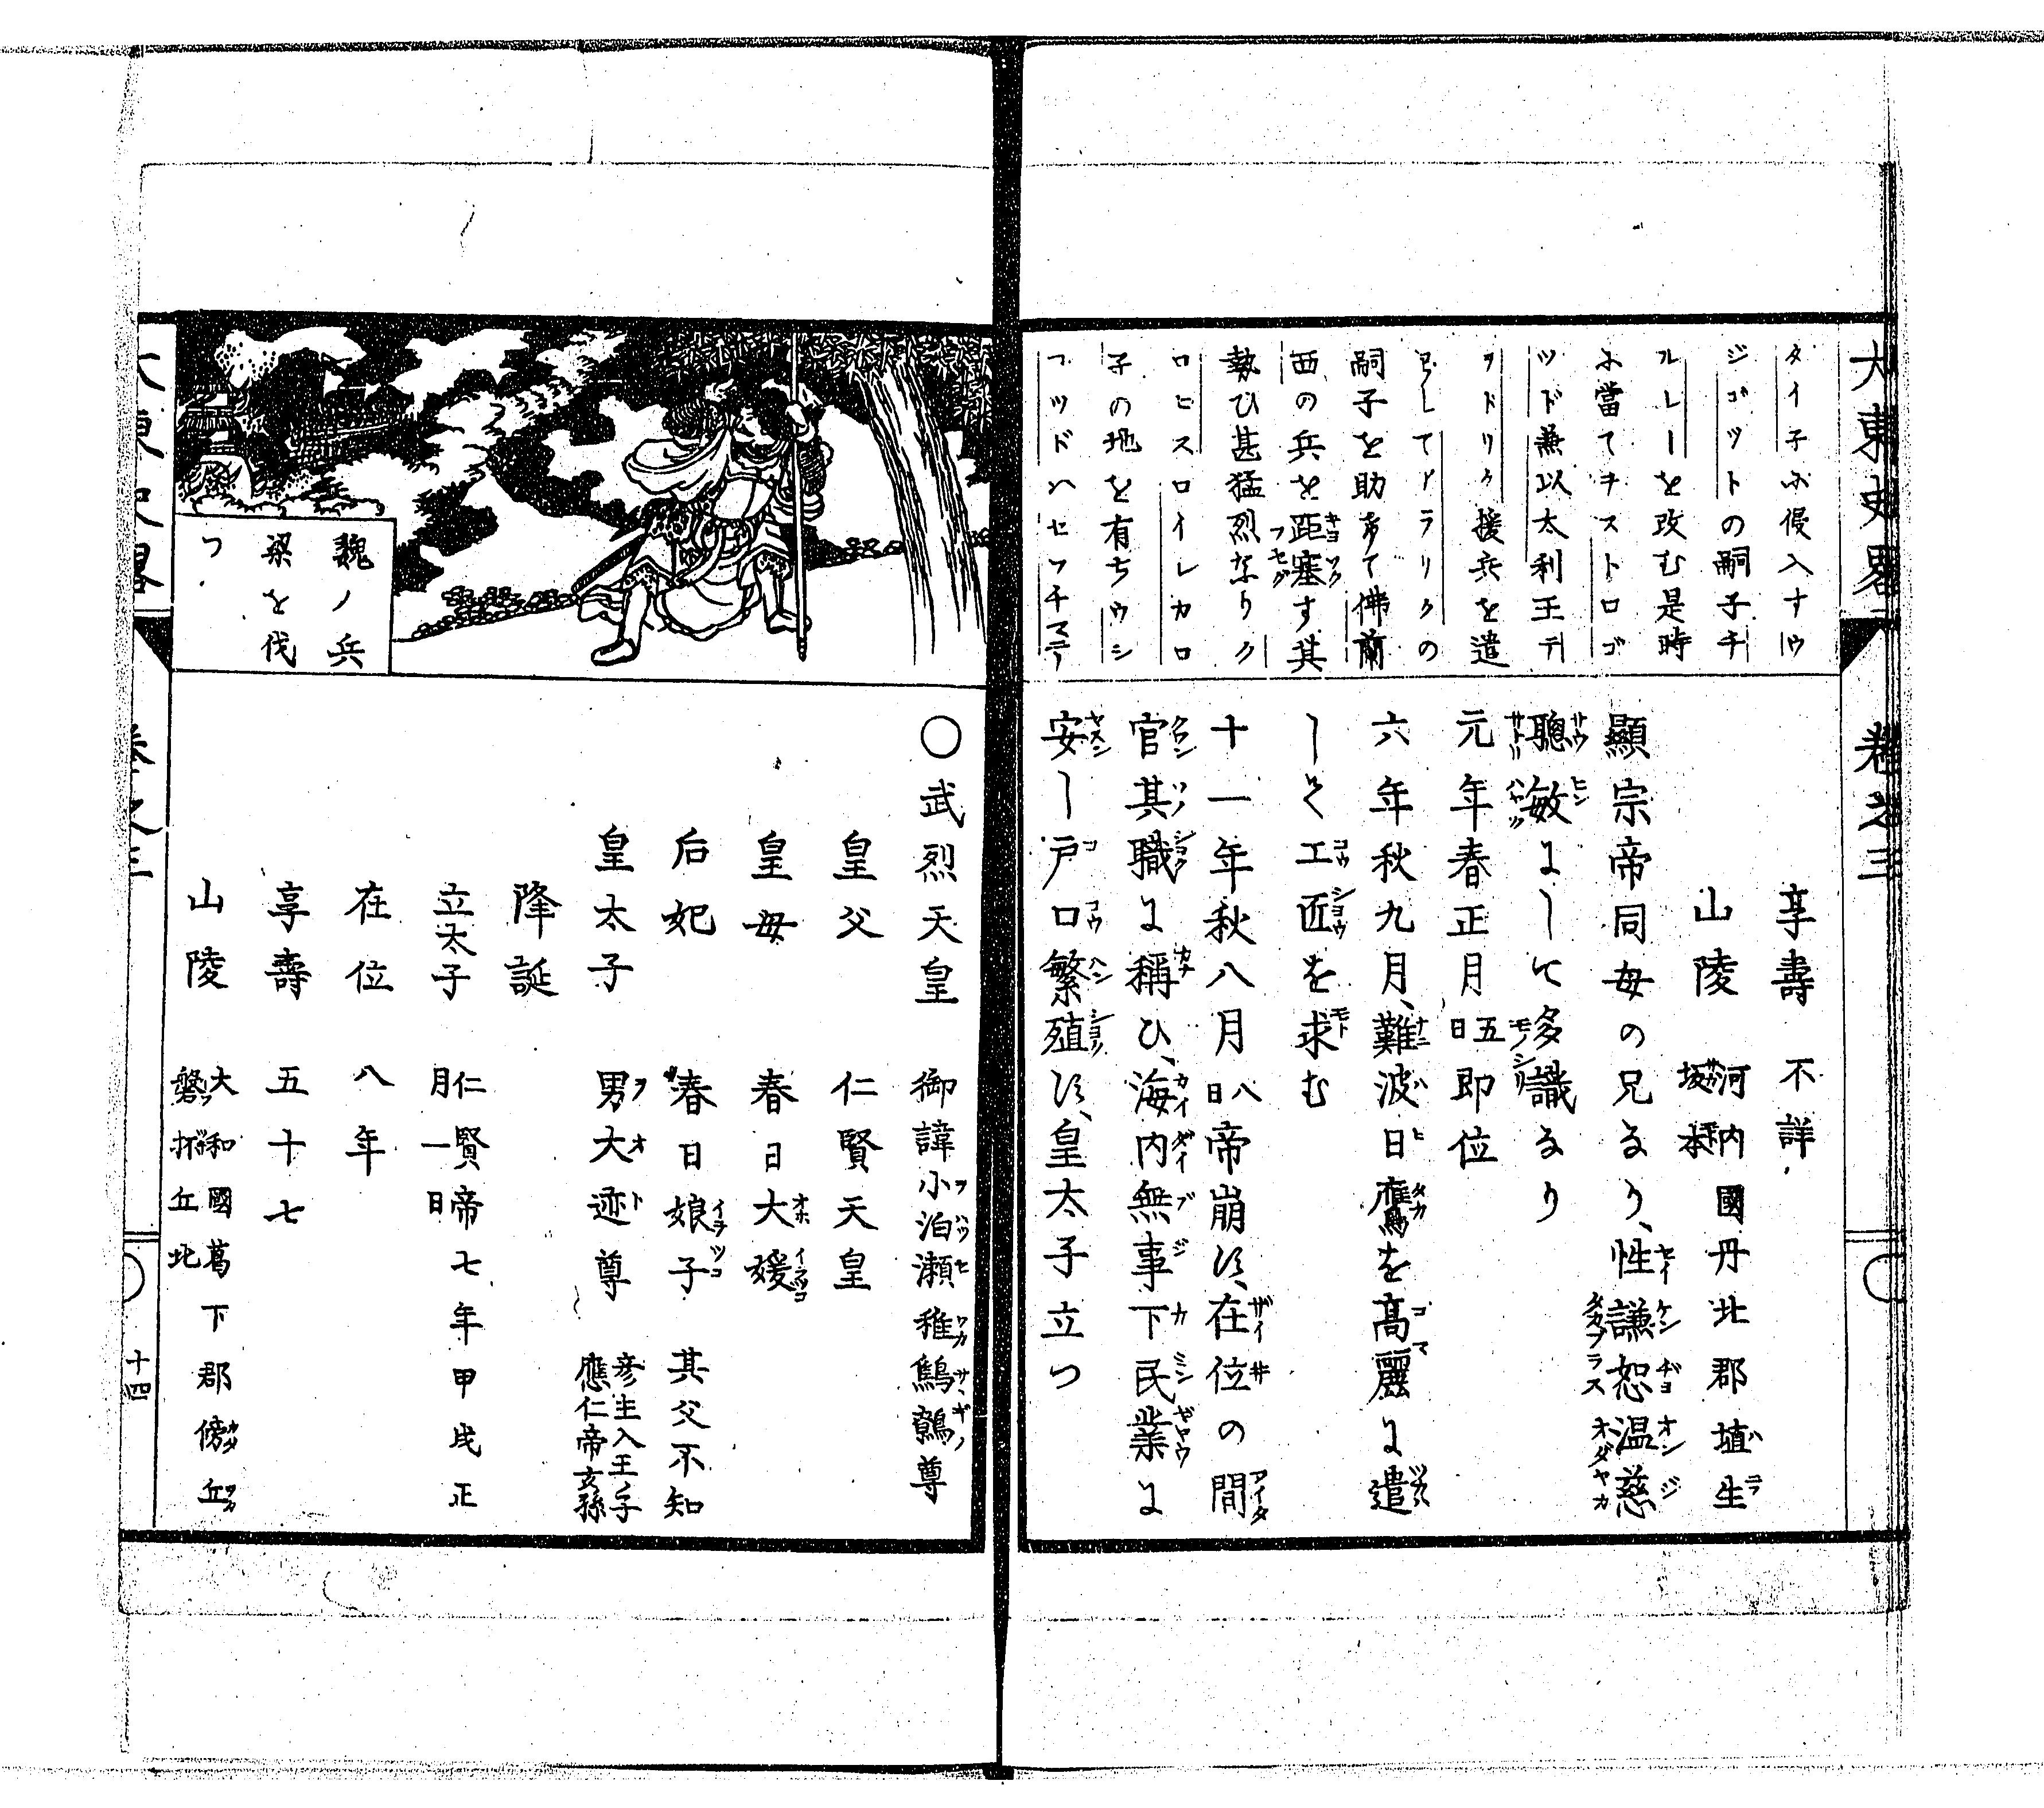 大東史畧
卷之三
タイ子ふ侵入すウ
ジゴツトの嗣子チ
ルレーを改む是時
ふ當てヲストロゴ
ツド兼以太利王テ
ヲドリク援兵を遣
の
嗣子を助けて佛蘭
西の兵を距塞す其
勢ひ甚猛烈なりク
ロヒスロイレカロ
子の地を有ちウシ
享壽 不詳
山陵 河内國丹北郡埴生坂本
顯宗帝同母の兄なり、性謙恕温慈
聰敏にして多識なり
元年春正月五日即位
六年秋九月、難波日鷹を高麗に遣
して工匠を求む
十一年秋八月八日帝崩ず、在位の間
官其職に稱ひ、海内無事下民業に
安し戸口繁殖す、皇太子立つ
魏ノ兵
梁を伐
つ
〇武烈天皇 御諱小泊瀬稚鷦鷯尊
皇父 仁賢天皇
皇母 春日大媛
后妃 春日娘子 其父不知
皇太子 男大迹尊 彦主人王ノ子 應仁帝玄孫
降誕
立太子 仁賢帝七年甲戌正月一日
在位 八年
享壽 五十七
山陵 大和國葛下郡傍丘磐坏丘北
十四